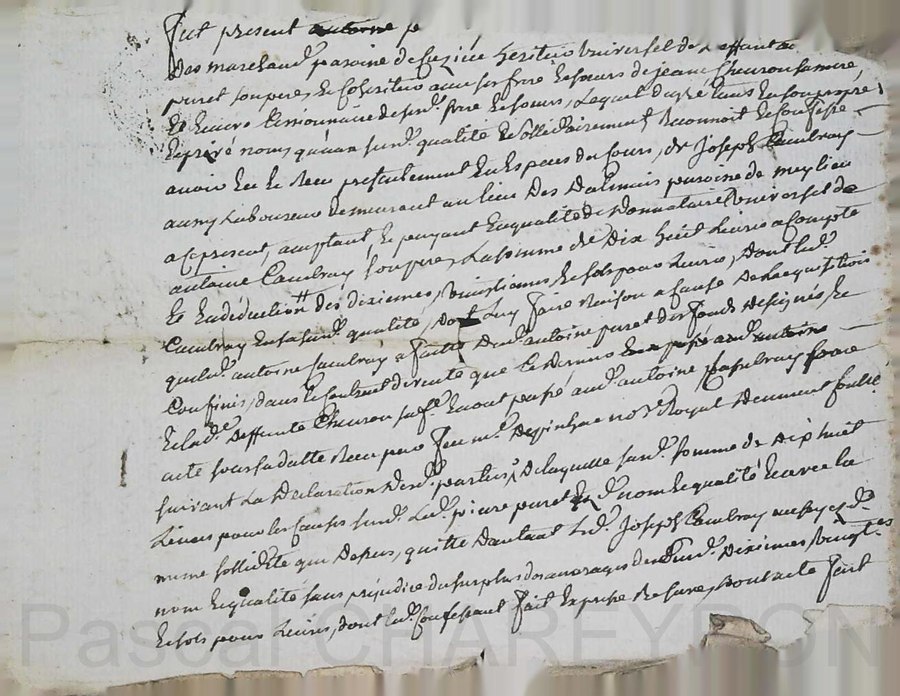 Fut present antoine p
Des marchand paroisse de heritier universel de deffunt
puret son pere, et coheritier avec ses frere et sœurs de jeane Cheuron sa mere,
et encore Cessionnaire de sesd. frere et sœurs, Lequel de gré tant en son propre
et privé nom, qu'aux susd. qualité et sollidairement Reconnoit et Confesse
avoir eu et Receu presentement en Especes du Cours, de Joseph Cambray
aussy Laboureur demeurant au lieu Des paroisse de
acy present, acceptant, et payant En qualité de Donnataire Universel de
antoine Cambray son pere, La somme de Dix huit Livres a Compte
et En déduction Des dixiemes, Vingtiemes et sols pour Livre, Dont led.
Cambray En sa susd. qualité, Doit Luy faire Raison a Cause De Lacquisition
que led. antoine Cambray a faite Dud. antoine puret Des fonds Designés, et
Confinés, dans le Contract de vente que
et lad. Deffunte Cheuron sa fe. En ont passé aud. antoine Cambray
acte sous sa datte Receu par feu me. Despinhac nore. Royal
suivant La Declaration Desd. parties, De laquelle susd. somme de Dix huit
Livres pour les Causes susd. Led. pierre puret Esd. nom et qualité Et avec la
meme sollidité que Dessus, quitte Dautant Led. Joseph Cambray
nom et qualité sans préjudice du surplus des arrerages desd. Dixiemes, Vingtes.
et sols pour Livres, dont led. Confessant fait Expresse Reserve, Dont acte fait
Pascal CHAREYRON